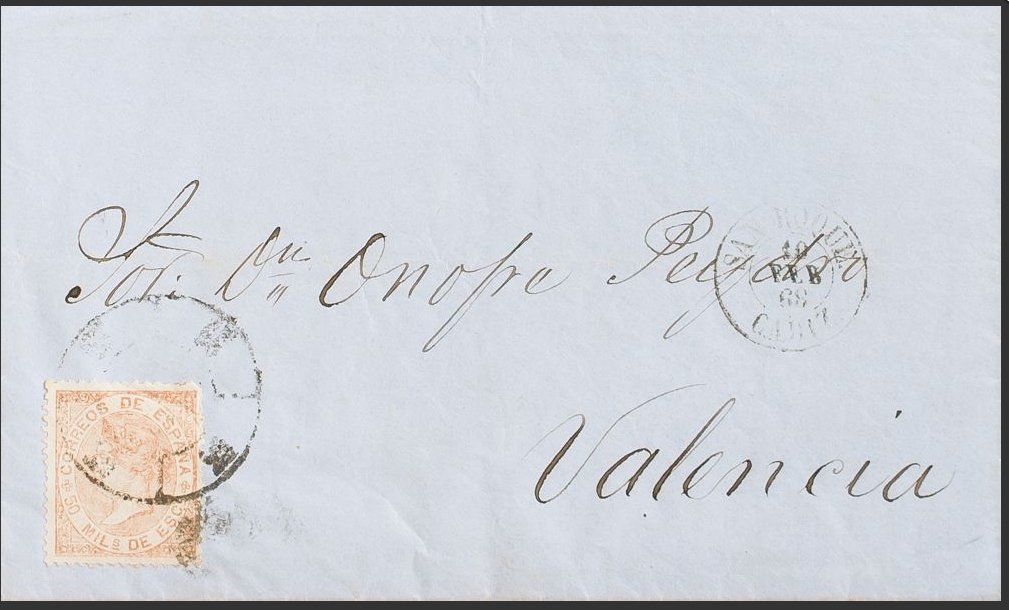 Sor. Dn Onofre
SAN ROQUE
FEB
CADIZ
Valencia
CORREOS DE ESPAÑA
50 MILS DE ESC